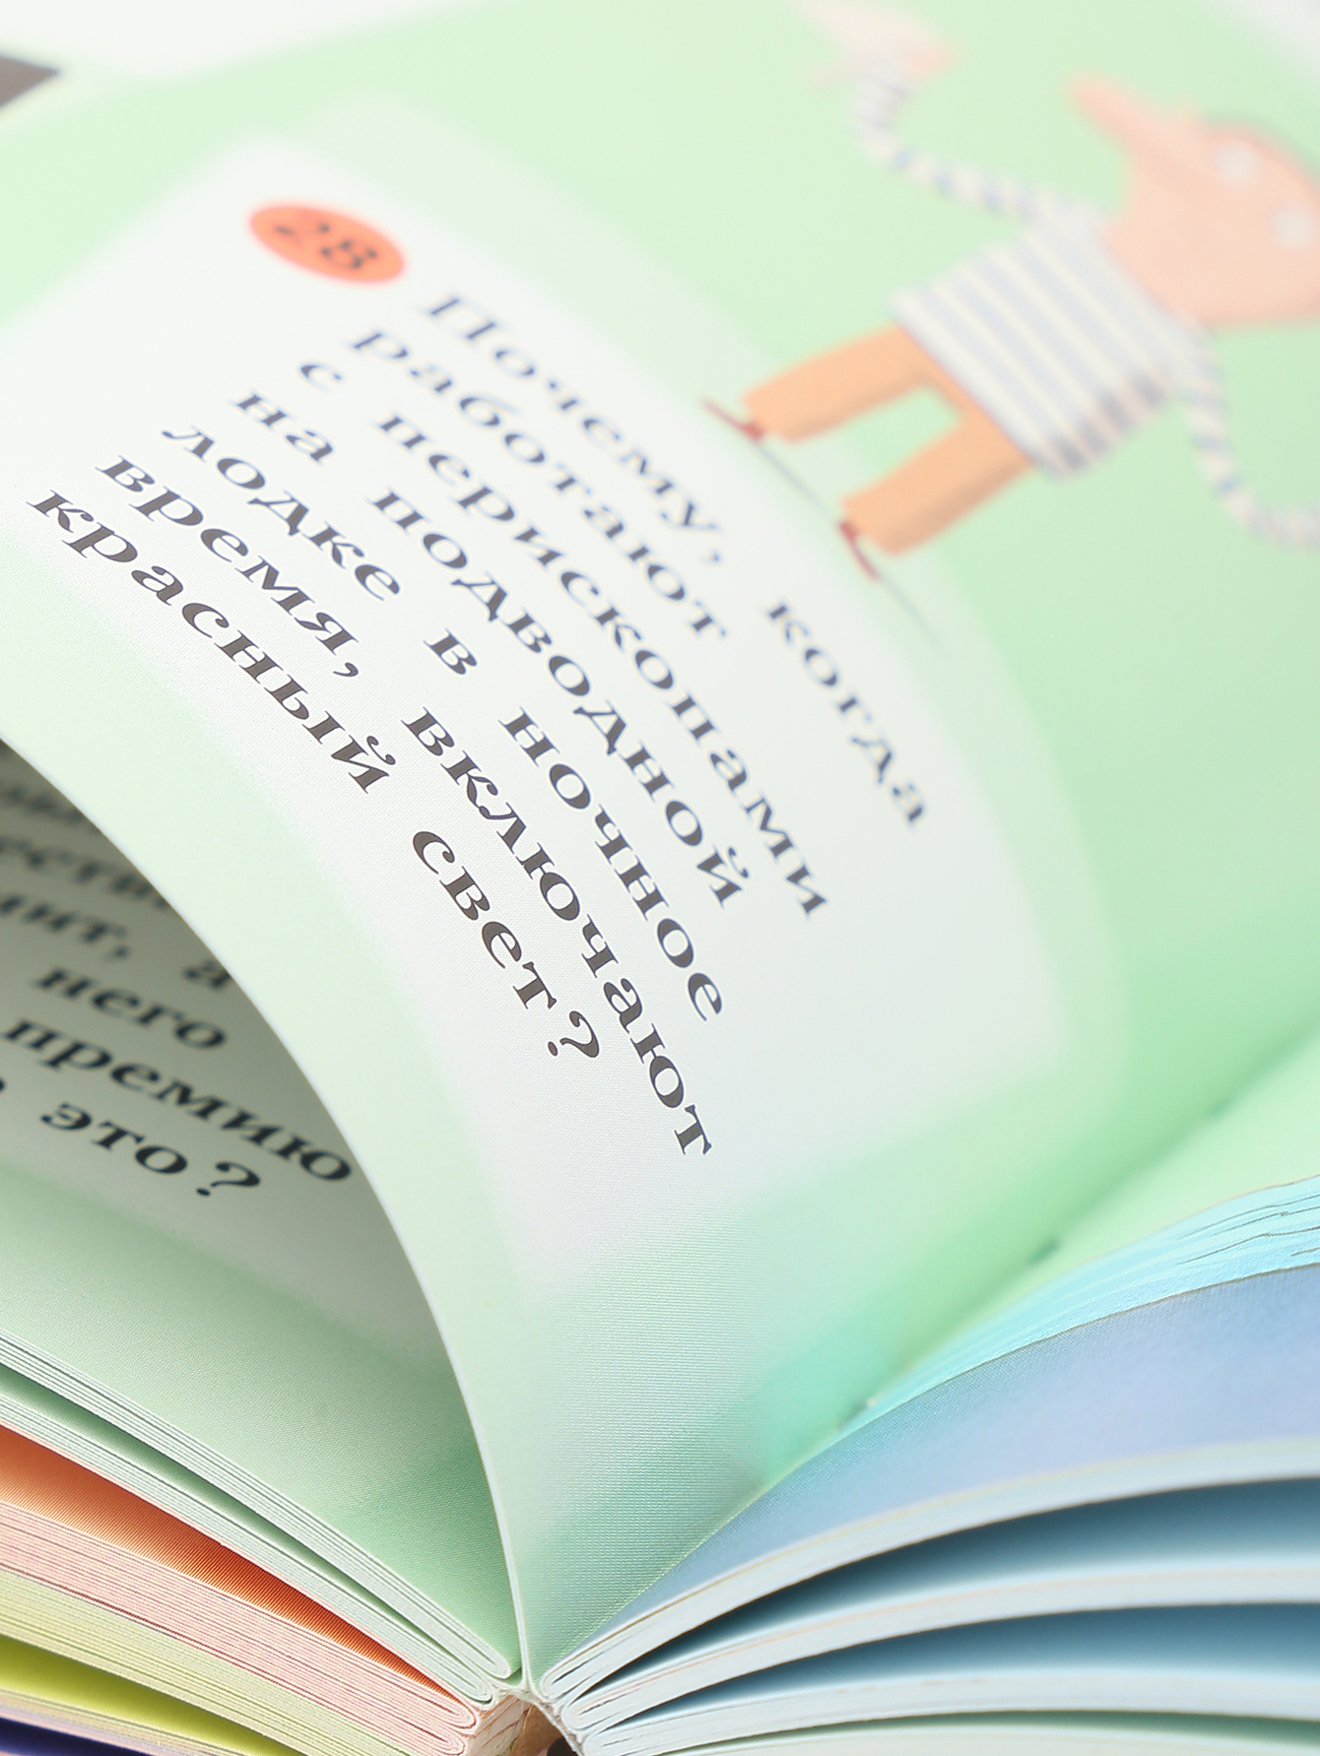 28
Почему, когда
работают
с перископами
на подводной
лодке в ночное
время, включают
красный свет?
него
премию
это?